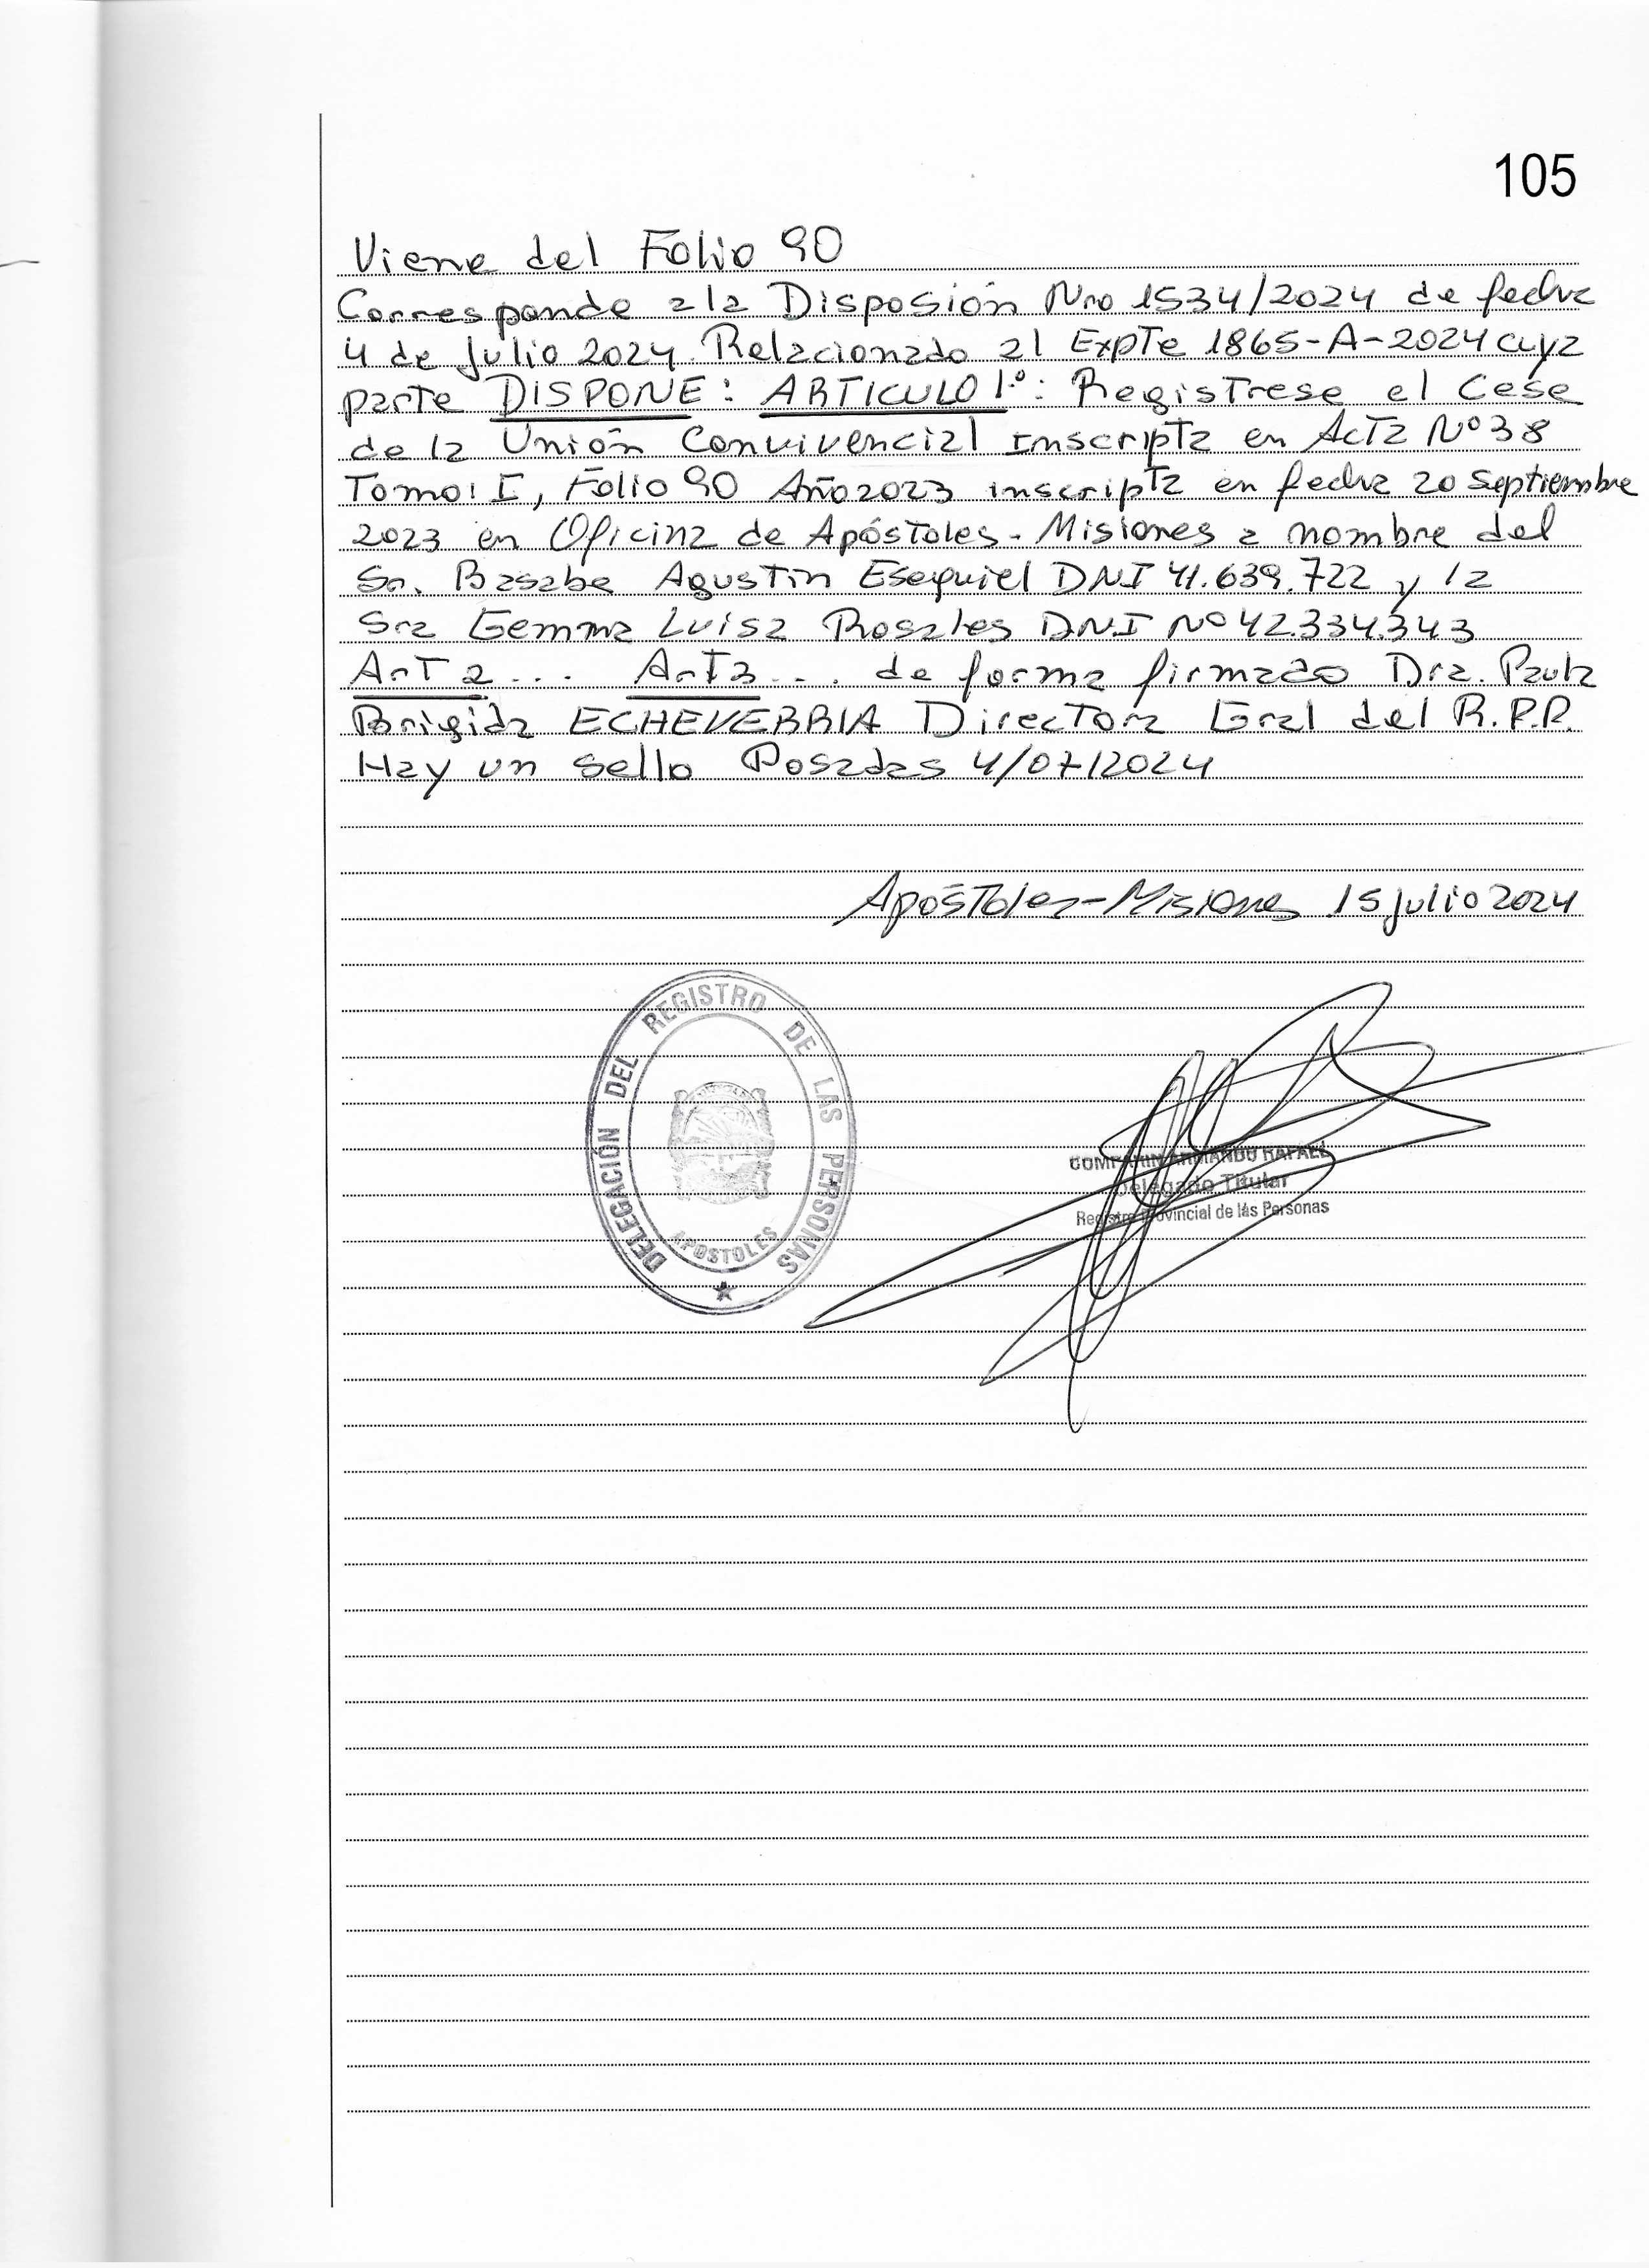 105
Viene del Folio 90
Corresponde a la Disposión Nro 1534/2024 de fecha
4 de Julio 2024. Relacionado al ExpTe 1865-A-2024 cuya
parte DISPONE: ARTICULO 1º: RegisTrese el Cese
de la Unión Convivencial Inscripta en Acta Nº 38
Tomo: I, Folio 90 Año 2023 inscripta en fecha 20 Septiembre
2023 en Oficina de Apóstoles - Misiones a nombre del
Sr. Basabe Agustin Esequiel DNI 41.639.722 y la
Sra Gemma Luisa Rosales DNI Nº 42.334.343
Art 2... Art 3... de forma firmado Dra. Paula
Brigida ECHEVERRIA Directora Gral del R.P.P.
Hay un sello Posadas 4/07/2024
Apóstoles - Misiones 15 julio 2024
DELEGACIÓN DEL REGISTRO DE LAS PERSONAS
APOSTOLES
ARMANDO RAFAEL
Delegado Titular
Registro Provincial de las Personas